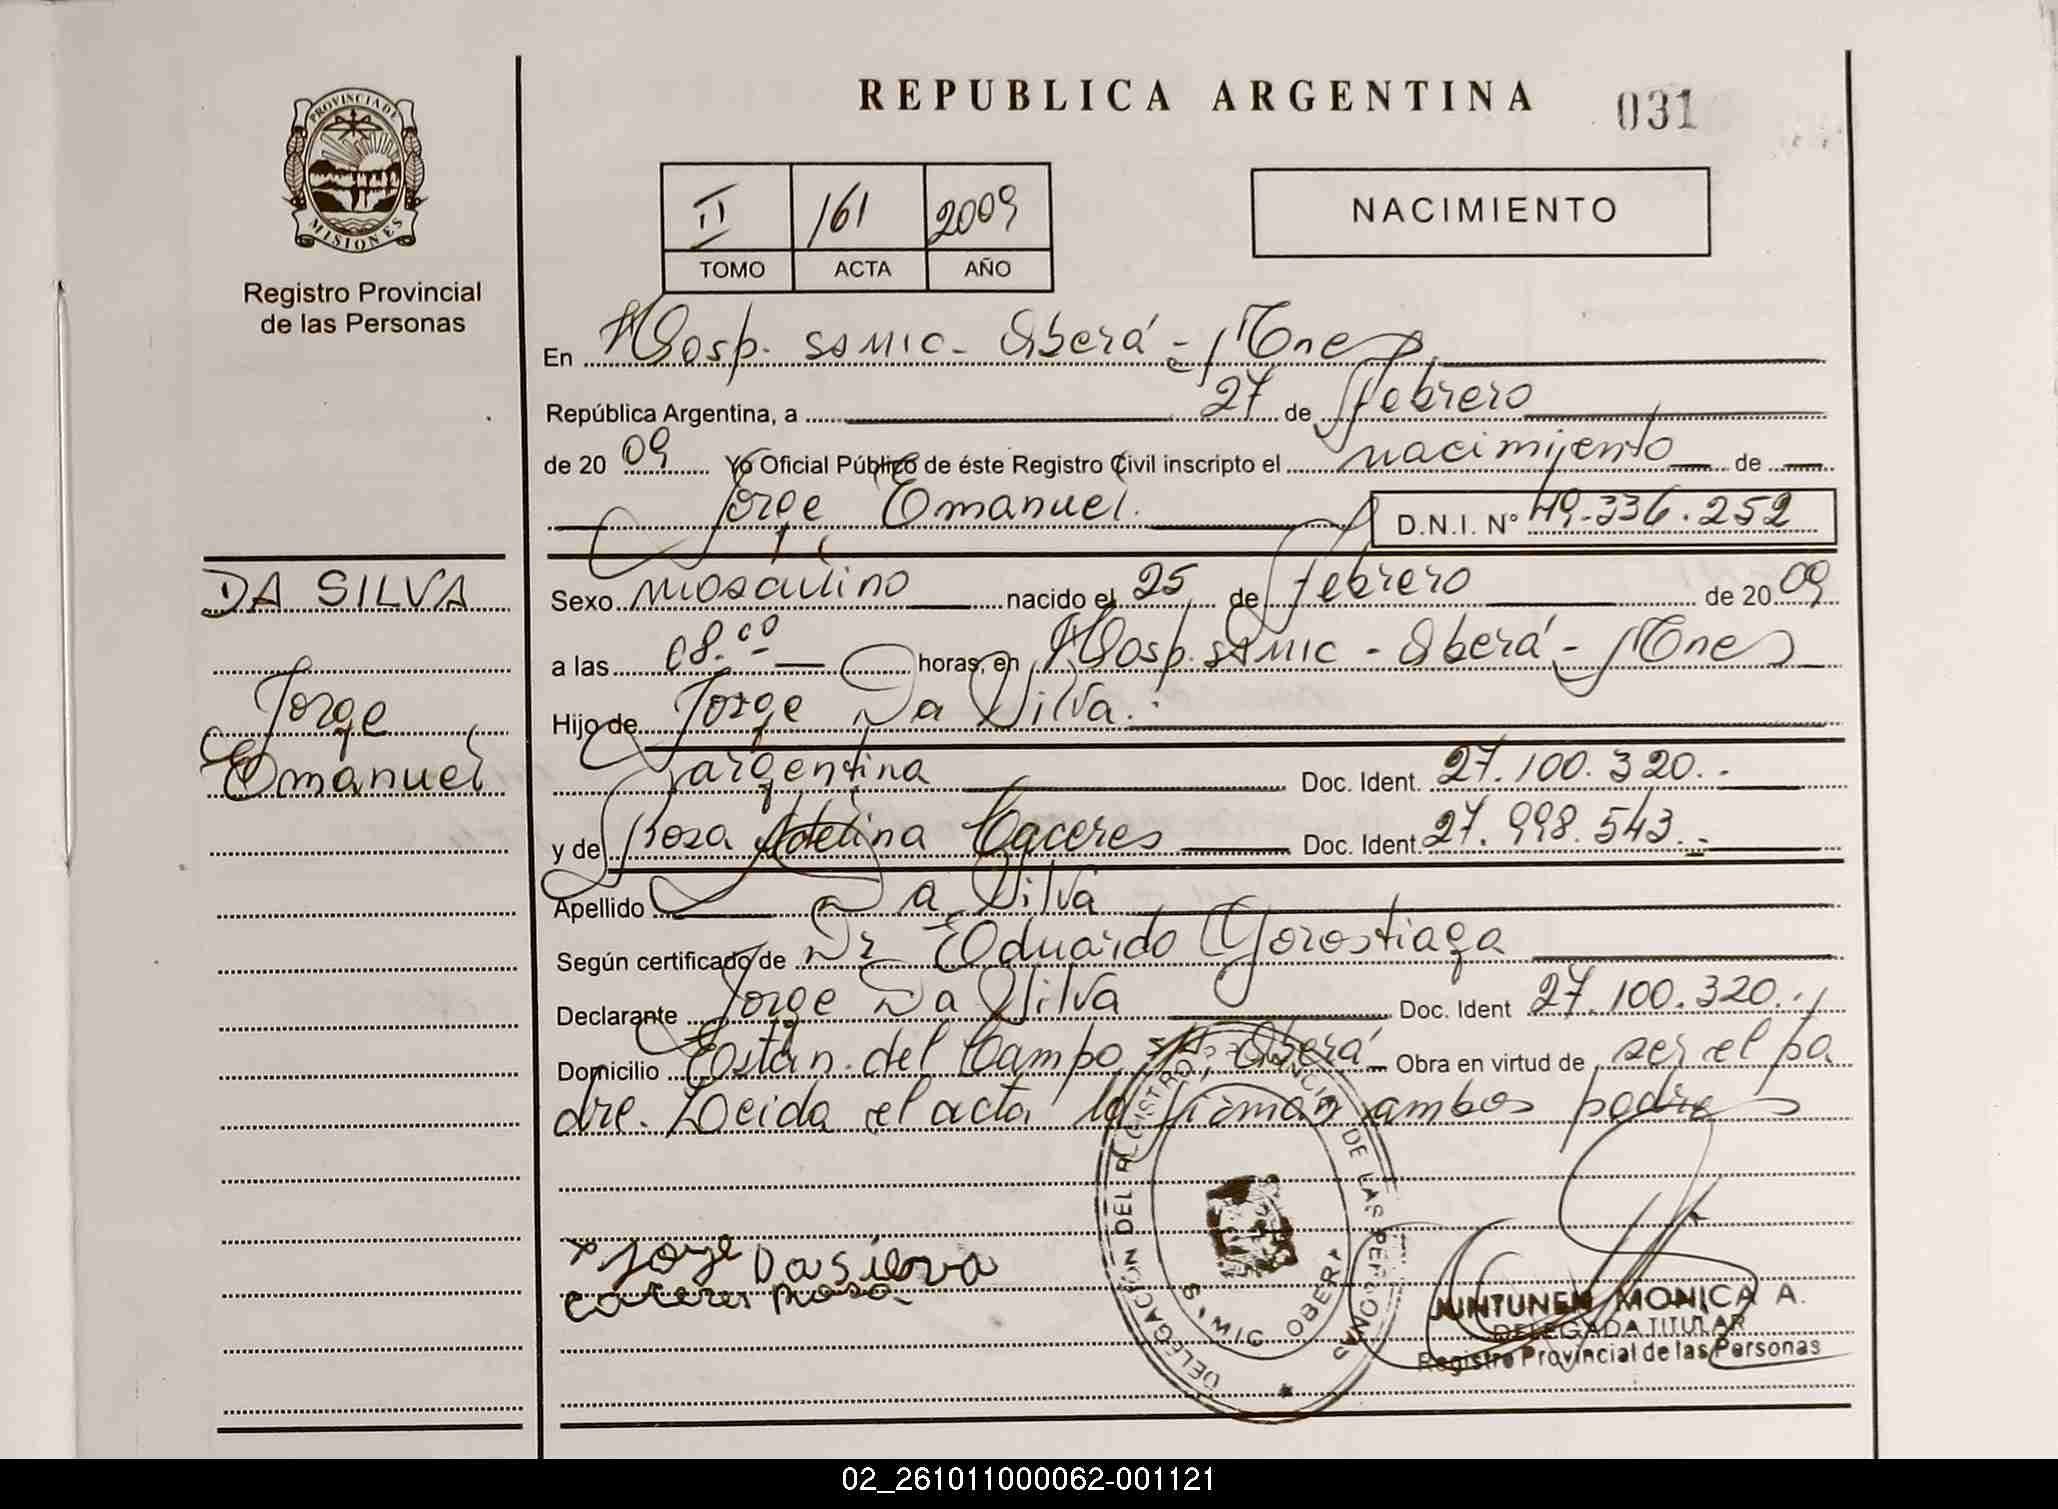 REPUBLICA ARGENTINA
031
PROVINCIA DE
MISIONES
Registro Provincial
de las Personas
II 161 2009
TOMO ACTA AÑO
NACIMIENTO
En Hosp. SAMIC - Oberá - Mnes
República Argentina, a 27 de febrero
de 2009 Yo Oficial Público de éste Registro Civil inscripto el nacimiento de
Jorge Emanuel. D.N.I. Nº 49.336.252
DA SILVA
Jorge
Emanuel
Sexo masculino nacido el 25 de febrero de 2009
a las 08.00 horas, en Hosp. SAMIC - Oberá - Mnes
Hijo de Jorge Da Silva.
argentina Doc. Ident. 27.100.320.-
y de Rosa Adelina Caceres Doc. Ident. 27.998.543.-
Apellido Da Silva
Según certificado de Dr Eduardo Gorostiaga
Declarante Jorge Da Silva Doc. Ident 27.100.320.-
Domicilio Estan. del Campo Oberá Obra en virtud de ser el pa
dre. Leida el acta la firman ambos padres
x Jorge Da silva
caceres Rosa
DELEGACIÓN DEL REGISTRO PROVINCIAL DE LAS PERSONAS
SAMIC OBERA
JUNTUNEN MONICA A.
DELEGADA TITULAR
Registro Provincial de las Personas
02_261011000062-001121